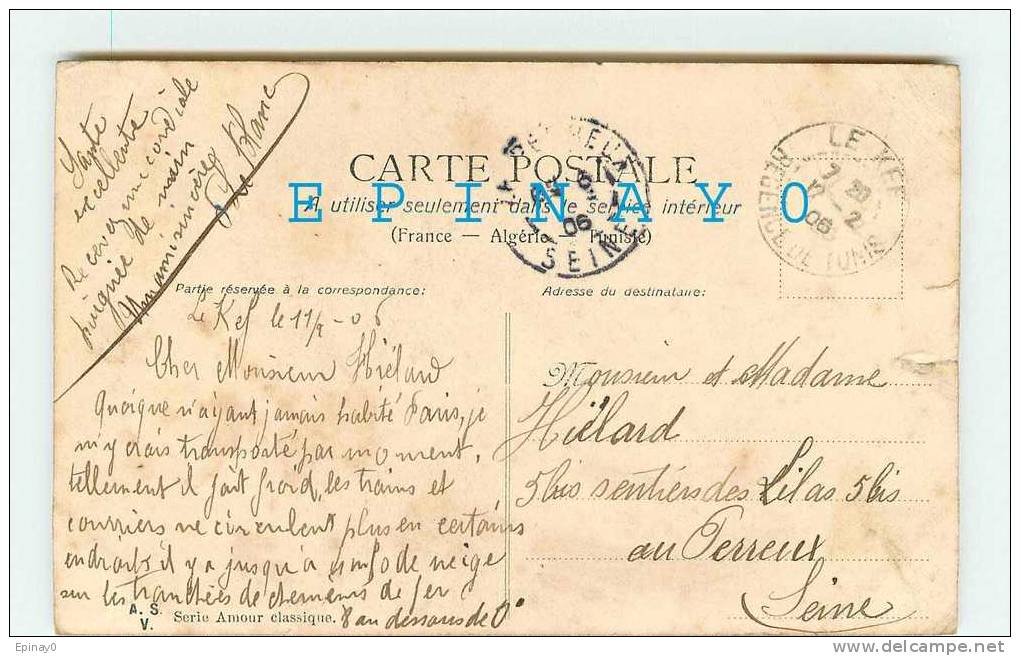 Santé
excellente
Recevez une cordiale
poignée de main
Un ami sincère
Le Blanc
CARTE POSTALE
EPINAY0
A utiliser seulement dans le service intérieur
(France — Algérie — Tunisie)
SEINE
06
LE KEF
2
06
REGENCE DE TUNIS
Partie réservée à la correspondance:
Adresse du destinataire:
Le Kef le 11/2 - 06
Cher Monsieur Hiélard
Quoique n'ayant jamais habité Paris, je
m'y crois transporté par moment.
tellement il fait froid, les trains et
courriers ne circulent plus en certains
endroits il y a jusqu'à de neige
sur les tranchées de chemins de fer
8 au dessous de 0°
A. S.
V.
Serie Amour classique.
Monsieur et Madame
Hiélard
5bis sentiers des Lilas 5bis
au Perreux
Seine
Epinay0
http://www.delcampe.net